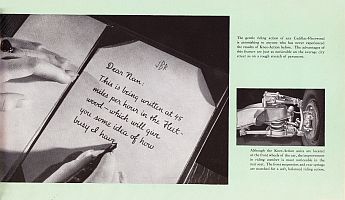 The gentle riding action of any Cadillac-Fleetwood
is astonishing to anyone who has never experienced
the results of Knee-Action before. The advantages of
this feature are just as noticeable on the average city
street as on a rough stretch of pavement.
Dear Nan,
This is being written at 45
miles per hour in the Fleet-
wood—which will give
you some idea of how
busy I have
Although the Knee-Action units are located
at the front wheels of the car, the improvement
in riding comfort is most noticeable in the
rear seat. The front suspension and rear springs
are matched for a soft, balanced riding action.